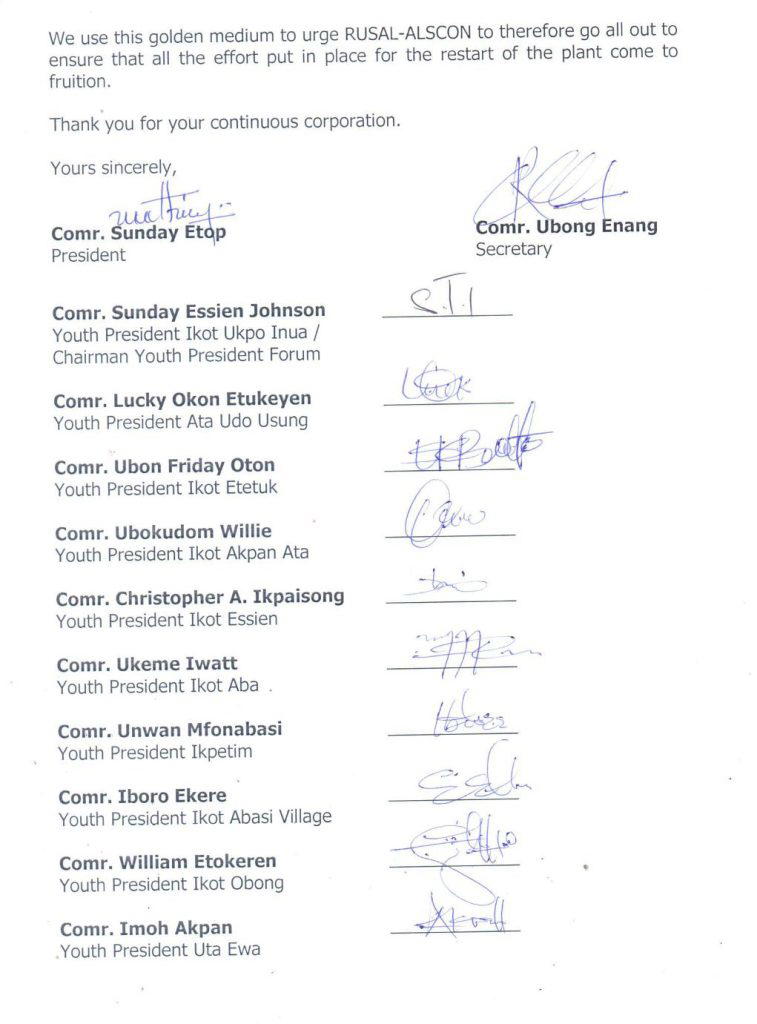 We use this golden medium to urge RUSAL-ALSCON to therefore go all out to
ensure that all the effort put in place for the restart of the plant come to
fruition.
Thank you for your continuous corporation.
Yours sincerely,
Comr. Sunday Etop
President
Comr. Ubong Enang
Secretary
Comr. Sunday Essien Johnson
Youth President Ikot Ukpo Inua /
Chairman Youth President Forum
Comr. Lucky Okon Etukeyen
Youth President Ata Udo Usung
Comr. Ubon Friday Oton
Youth President Ikot Etetuk
Comr. Ubokudom Willie
Youth President Ikot Akpan Ata
Comr. Christopher A. Ikpaisong
Youth President Ikot Essien
Comr. Ukeme Iwatt
Youth President Ikot Aba
Comr. Unwan Mfonabasi
Youth President Ikpetim
Comr. Iboro Ekere
Youth President Ikot Abasi Village
Comr. William Etokeren
Youth President Ikot Obong
Comr. Imoh Akpan
Youth President Uta Ewa